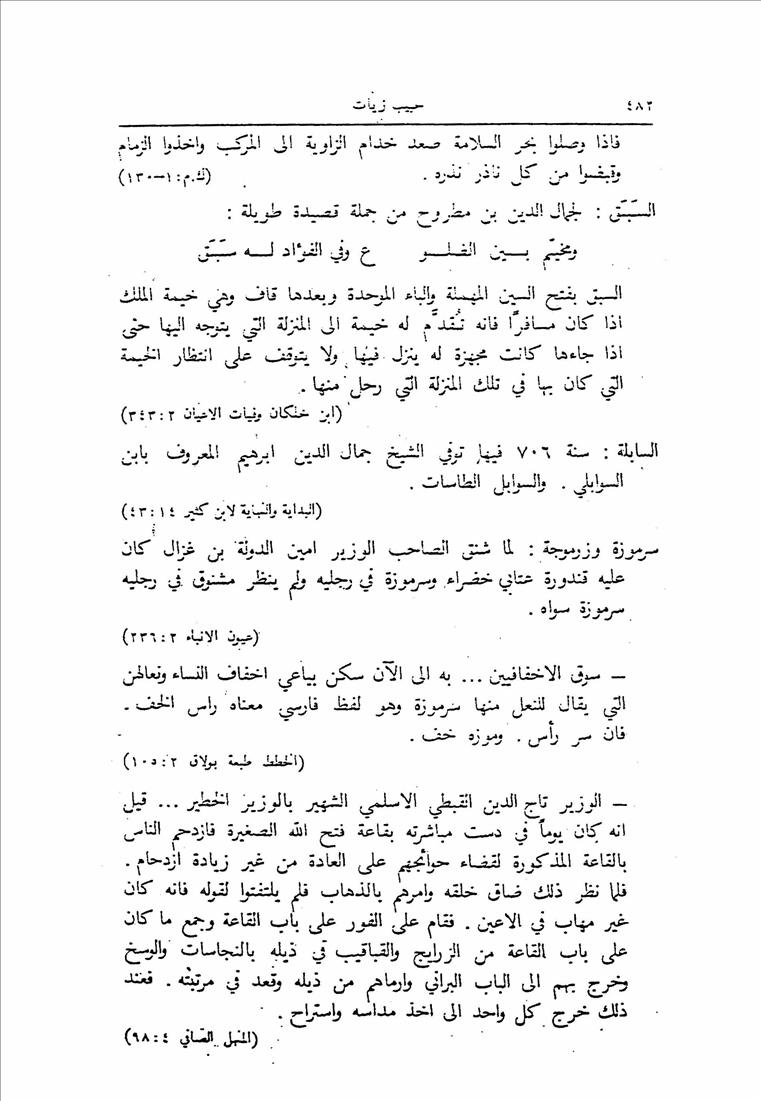 ٤٨٢ حبيب زيات
فاذا وصلوا بحر السلامة صعد خدام الزاوية الى المركب واخذوا الزمام
وقبضوا من كل ناذر نذره . (ك.م:١-١٣٠)
السَّبَق : لجمال الدين بن مطروح من جملة قصيدة طويلة :
ومخيّم بين الضلو ع وفي الفؤاد له سَبَق
السبق بفتح السين المهملة والباء الموحدة وبعدها قاف وهي خيمة الملك
اذا كان مسافرًا فانه تُقدَّم له خيمة الى المنزلة التي يتوجه اليها حتى
اذا جاءها كانت مجهزة له ينزل فيها ولا يتوقف على انتظار الخيمة
التي كان بها في تلك المنزلة التي رحل منها .
(ابن خلكان وفيات الاعيان ٢ : ٣٤٣)
السابلة : سنة ٧٠٦ فيها توفي الشيخ جمال الدين ابرهيم المعروف بابن
السوابلي . والسوابل الطاسات .
(البداية والنهاية لابن كثير ١٤ : ٤٣)
سرموزة وزرموجة : لما شنق الصاحب الوزير امين الدولة بن غزال كان
عليه قندورة عتابي خضراء وسرموزة في رجليه ولم ينظر مشنوق في رجليه
سرموزة سواه .
(عيون الانباء ٢ : ٢٣٦)
— سوق الاخفافيين ... به الى الآن سكن بياعي اخفاف النساء ونعالهن
التي يقال للنعل منها سرموزة وهو لفظ فارسي معناه راس الخف .
فان سر رأس . وموزه خف .
(الخطط طبعة بولاق ٢ : ١٠٥)
— الوزير تاج الدين القبطي الاسلمي الشهير بالوزير الخطير ... قيل
انه كان يوماً في دست مباشرته بقاعة فتح الله الصغيرة فازدحم الناس
بالقاعة المذكورة لقضاء حوائجهم على العادة من غير زيادة ازدحام .
فلما نظر ذلك ضاق خلقه وامرهم بالذهاب فلم يلتفتوا لقوله فانه كان
غير مهاب في الاعين . فقام على الفور على باب القاعة وجمع ما كان
على باب القاعة من الزرابج والقباقيب في ذيله بالنجاسات والوسخ
وخرج بهم الى الباب البراني وارماهم من ذيله وقعد في مرتبته . فعند
ذلك خرج كل واحد الى اخذ مداسه واستراح .
(المنهل الصافي ٤ : ٩٨)